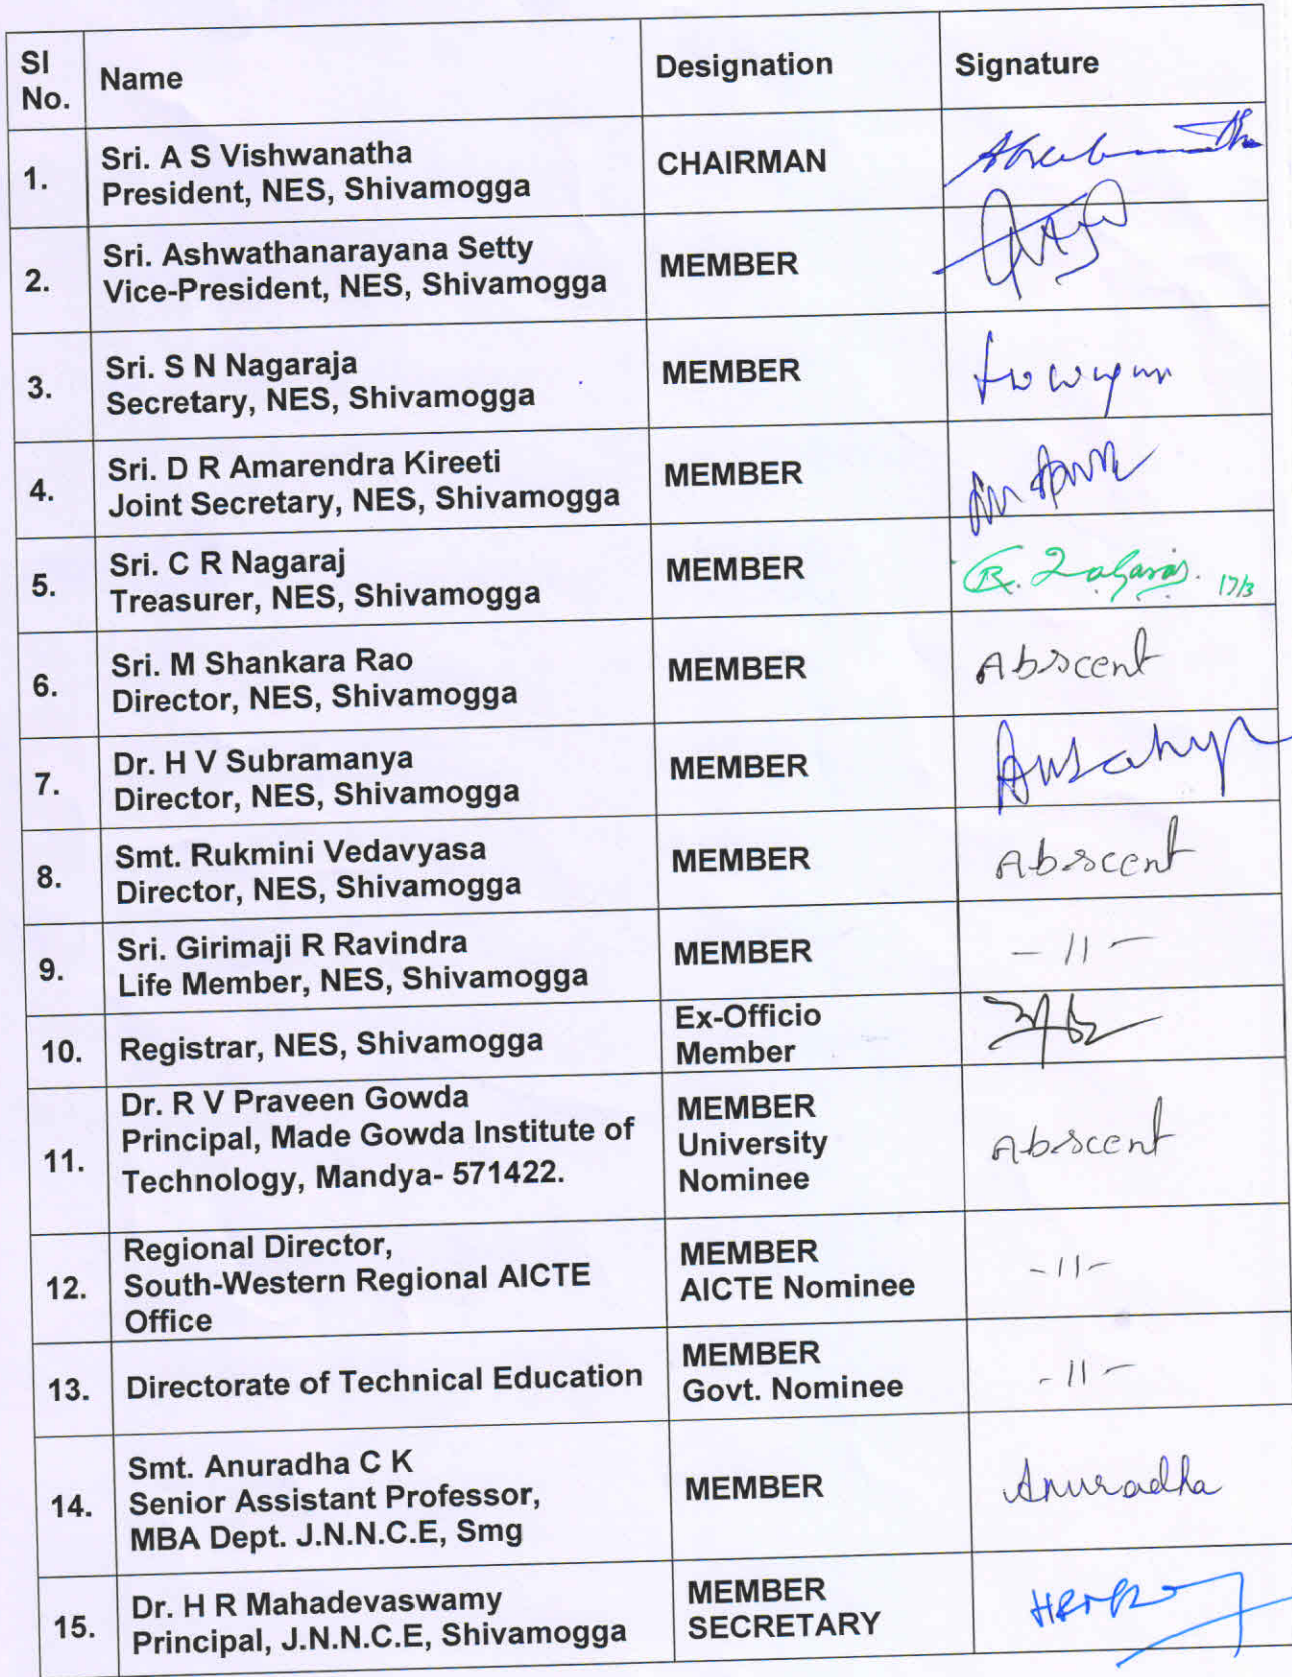 Sl No. Name Designation Signature
1. Sri. A S Vishwanatha
President, NES, Shivamogga
CHAIRMAN
2. Sri. Ashwathanarayana Setty
Vice-President, NES, Shivamogga
MEMBER
3. Sri. S N Nagaraja
Secretary, NES, Shivamogga
MEMBER
4. Sri. D R Amarendra Kireeti
Joint Secretary, NES, Shivamogga
MEMBER
5. Sri. C R Nagaraj
Treasurer, NES, Shivamogga
MEMBER
17/3
6. Sri. M Shankara Rao
Director, NES, Shivamogga
MEMBER
Abscent
7. Dr. H V Subramanya
Director, NES, Shivamogga
MEMBER
8. Smt. Rukmini Vedavyasa
Director, NES, Shivamogga
MEMBER
Abscent
9. Sri. Girimaji R Ravindra
Life Member, NES, Shivamogga
MEMBER
-11-
10. Registrar, NES, Shivamogga
Ex-Officio
Member
11. Dr. R V Praveen Gowda
Principal, Made Gowda Institute of
Technology, Mandya- 571422.
MEMBER
University
Nominee
Abscent
12. Regional Director,
South-Western Regional AICTE
Office
MEMBER
AICTE Nominee
-11-
13. Directorate of Technical Education
MEMBER
Govt. Nominee
-11-
14. Smt. Anuradha C K
Senior Assistant Professor,
MBA Dept. J.N.N.C.E, Smg
MEMBER
Anuradha
15. Dr. H R Mahadevaswamy
Principal, J.N.N.C.E, Shivamogga
MEMBER
SECRETARY